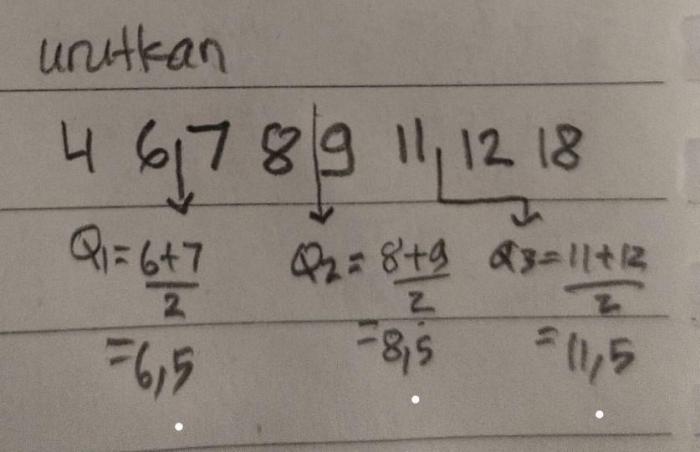 urutkan
4 6,7 8|9 11, 12 18
Q1 = 6+7/2 Q2 = 8+9/2 Q3 = 11+12/2
= 6,5 = 8,5 = 11,5